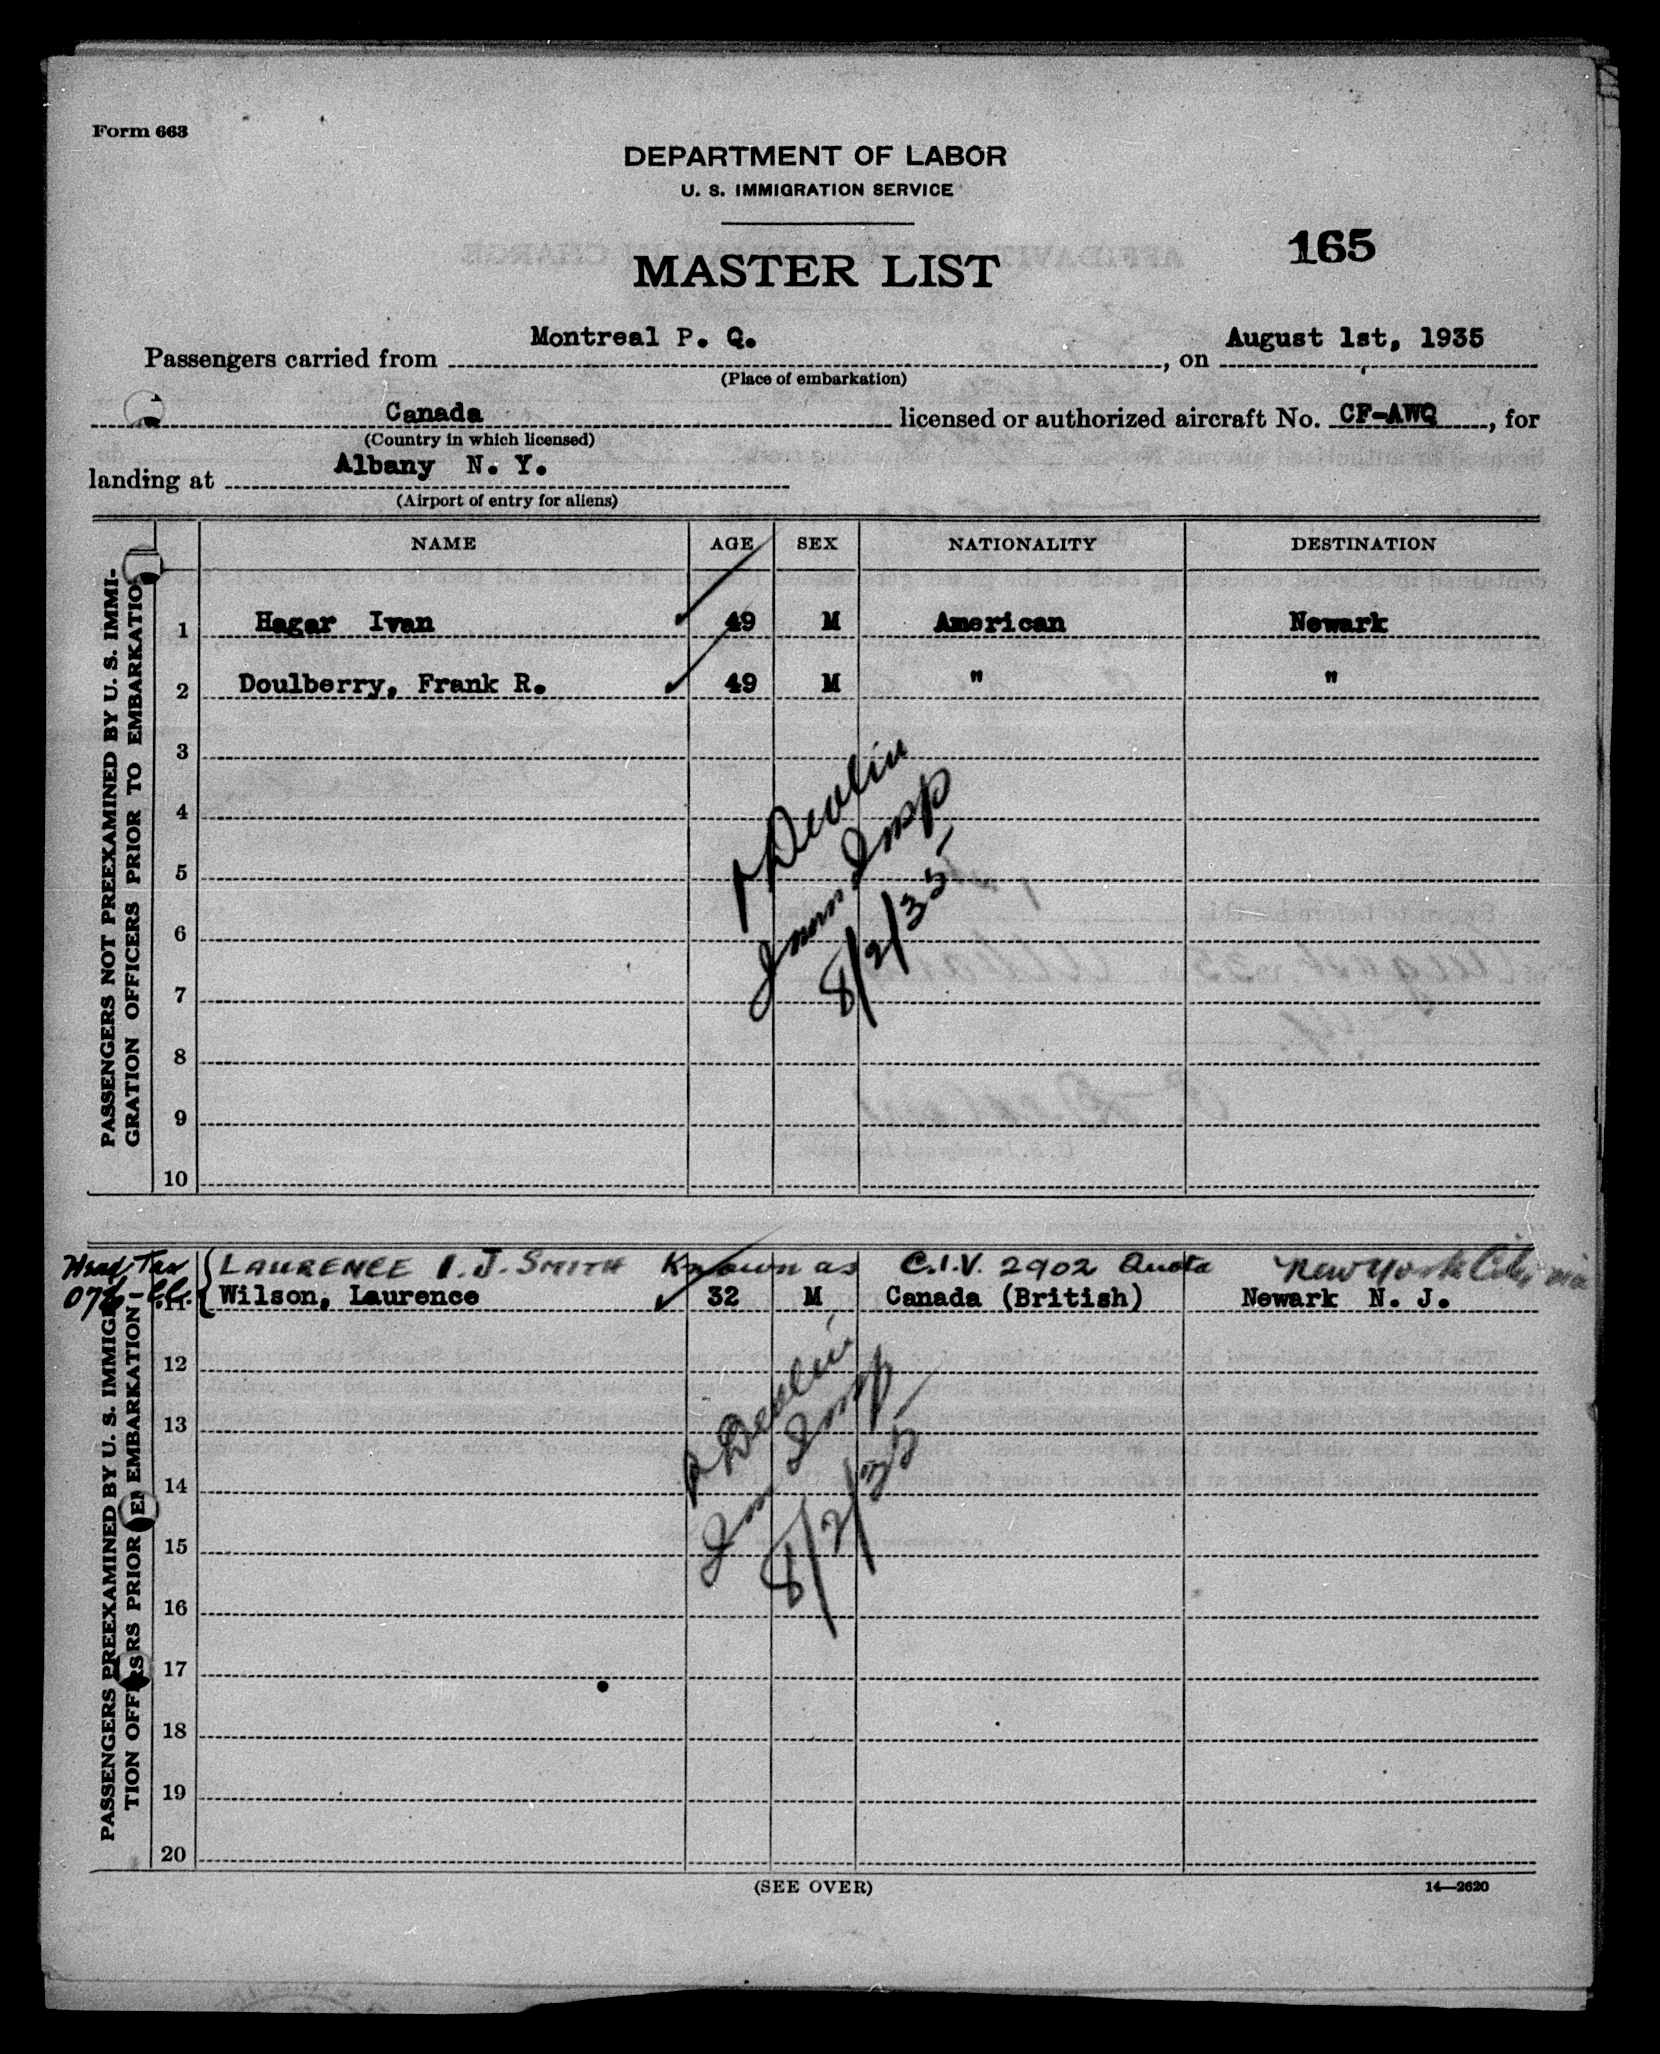 Form 663
DEPARTMENT OF LABOR
U. S. IMMIGRATION SERVICE
165
MASTER LIST
Passengers carried from Montreal P. Q., on August 1st, 1935
(Place of embarkation)
Canada licensed or authorized aircraft No. CF-AWQ, for
(Country in which licensed)
landing at Albany N. Y.
(Airport of entry for aliens)
NAME AGE SEX NATIONALITY DESTINATION
PASSENGERS NOT PREEXAMINED BY U. S. IMMI-
GRATION OFFICERS PRIOR TO EMBARKATION
1 Hagar Ivan 49 M American Newark
2 Doulberry, Frank R. 49 M " "
3
4
5
6
7
8
9
10
Devlin
Imm Insp
8/2/35
Head Tax
LAURENCE I. J. SMITH Known as C.I.V. 2902 Quota New York City via
11 Wilson, Laurence 32 M Canada (British) Newark N. J.
PASSENGERS PREEXAMINED BY U. S. IMMIGRA
TION OFFICERS PRIOR EMBARKATION
12
13
14
15
16
17
18
19
20
Devlin
Imm Insp
8/2/35
(SEE OVER)
14—2620